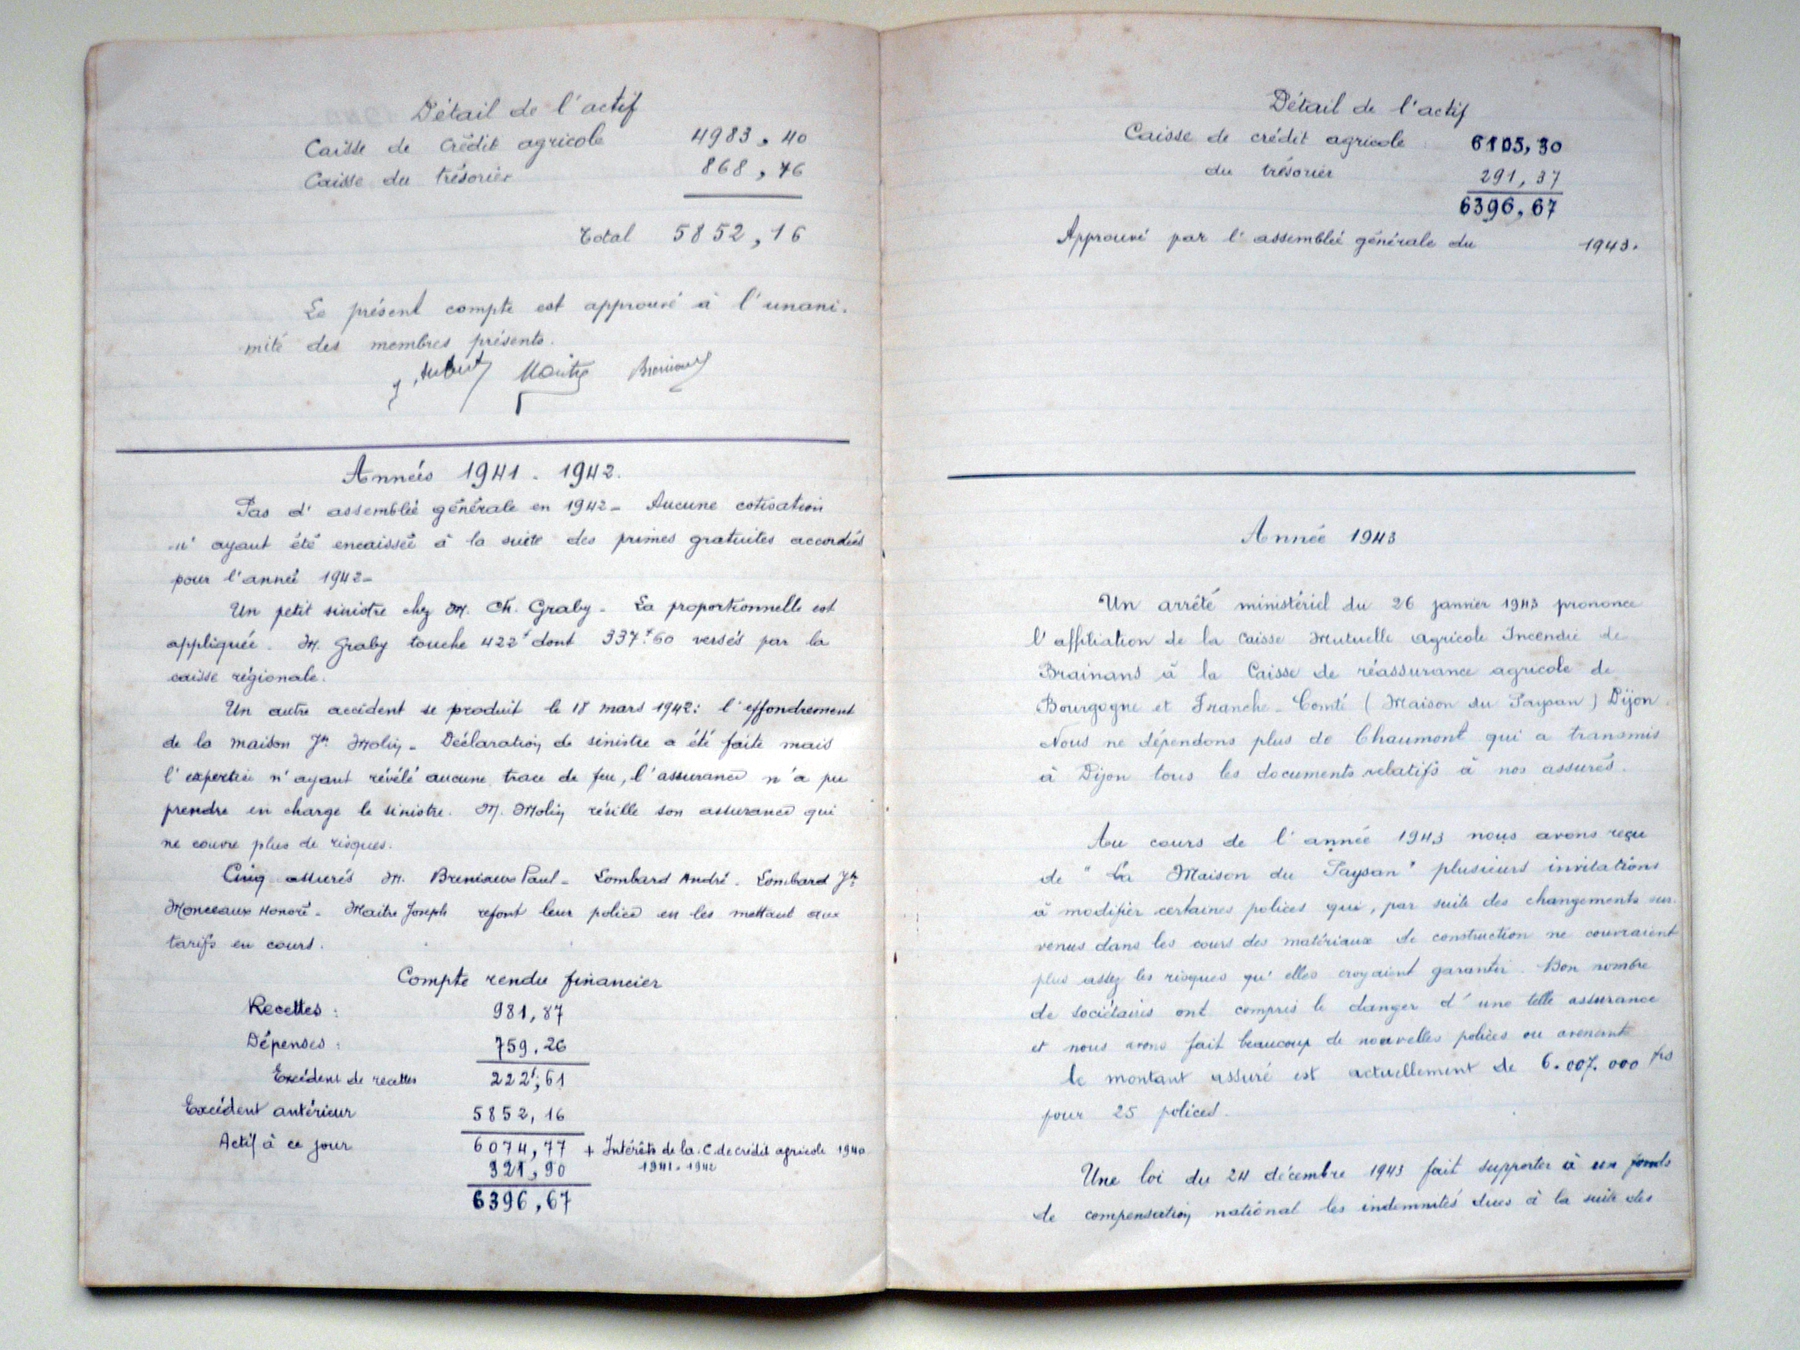 Détail de l'actif
Caisse de Crédit agricole 4983,40
Caisse du trésorier 868,76
Total 5852,16
Le présent compte est approuvé à l'unani-
mité des membres présents.
Maitre
Années 1941 - 1942.
Pas d'assemblée générale en 1942 - Aucune cotisation
n'ayant été encaissée à la suite des primes gratuites accordées
pour l'année 1942 -
Un petit sinistre chez M. Ch. Graby - La proportionnelle est
appliquée. M. Graby touche 422f dont 337f60 versés par la
caisse régionale.
Un autre accident se produit le 18 mars 1942: l'effondrement
de la maison Jh Molin - Déclaration de sinistre a été faite mais
l'expertise n'ayant révélé aucune trace de feu, l'assurance n'a pu
prendre en charge le sinistre. M. Molin résille son assurance qui
ne couvre plus de risques.
Cinq assurés M. Breniaux Paul - Lombard André - Lombard Jh
Monceaux Honoré - Maitre Joseph refont leur police en les mettant aux
tarifs en cours.
Compte rendu financier
Recettes : 981,87
Dépenses : 759,26
Excédent de recettes 222f,61
Excédent antérieur 5852,16
Actif à ce jour 6074,77 + Intérêts de la C. de crédit agricole 1940
321,90 1941-1942
6396,67
Détail de l'actif
Caisse de crédit agricole : 6105,30
du trésorier 291,37
6396,67
Approuvé par l'assemblée générale du 1943.
Année 1943
Un arrêté ministériel du 26 janvier 1943 prononce
l'affiliation de la Caisse Mutuelle Agricole Incendie de
Brainans à la Caisse de réassurance agricole de
Bourgogne et Franche-Comté (Maison du Paysan) Dijon.
Nous ne dépendons plus de Chaumont qui a transmis
à Dijon tous les documents relatifs à nos assurés.
Au cours de l'année 1943 nous avons reçu
de "La Maison du Paysan" plusieurs invitations
à modifier certaines polices qui, par suite des changements sur-
venus dans les cours des matériaux de construction ne couvraient
plus assez les risques qu'elles croyaient garantir. Bon nombre
de sociétaires ont compris le danger d'une telle assurance
et nous avons fait beaucoup de nouvelles polices ou avenants
le montant assuré est actuellement de 6.007.000 frs
pour 25 polices.
Une loi du 24 décembre 1943 fait supporter à un fonds
de compensation national les indemnités dues à la suite des